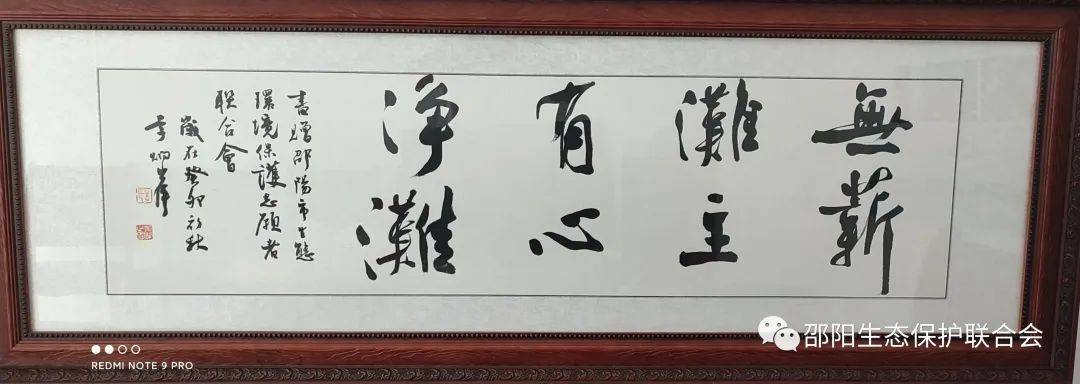 無薪
灘主
有心
净灘
書贈邵陽市生態
環境保護志願者
聯合會
歲在癸卯初秋
邵阳生态保护联合会
REDMI NOTE 9 PRO